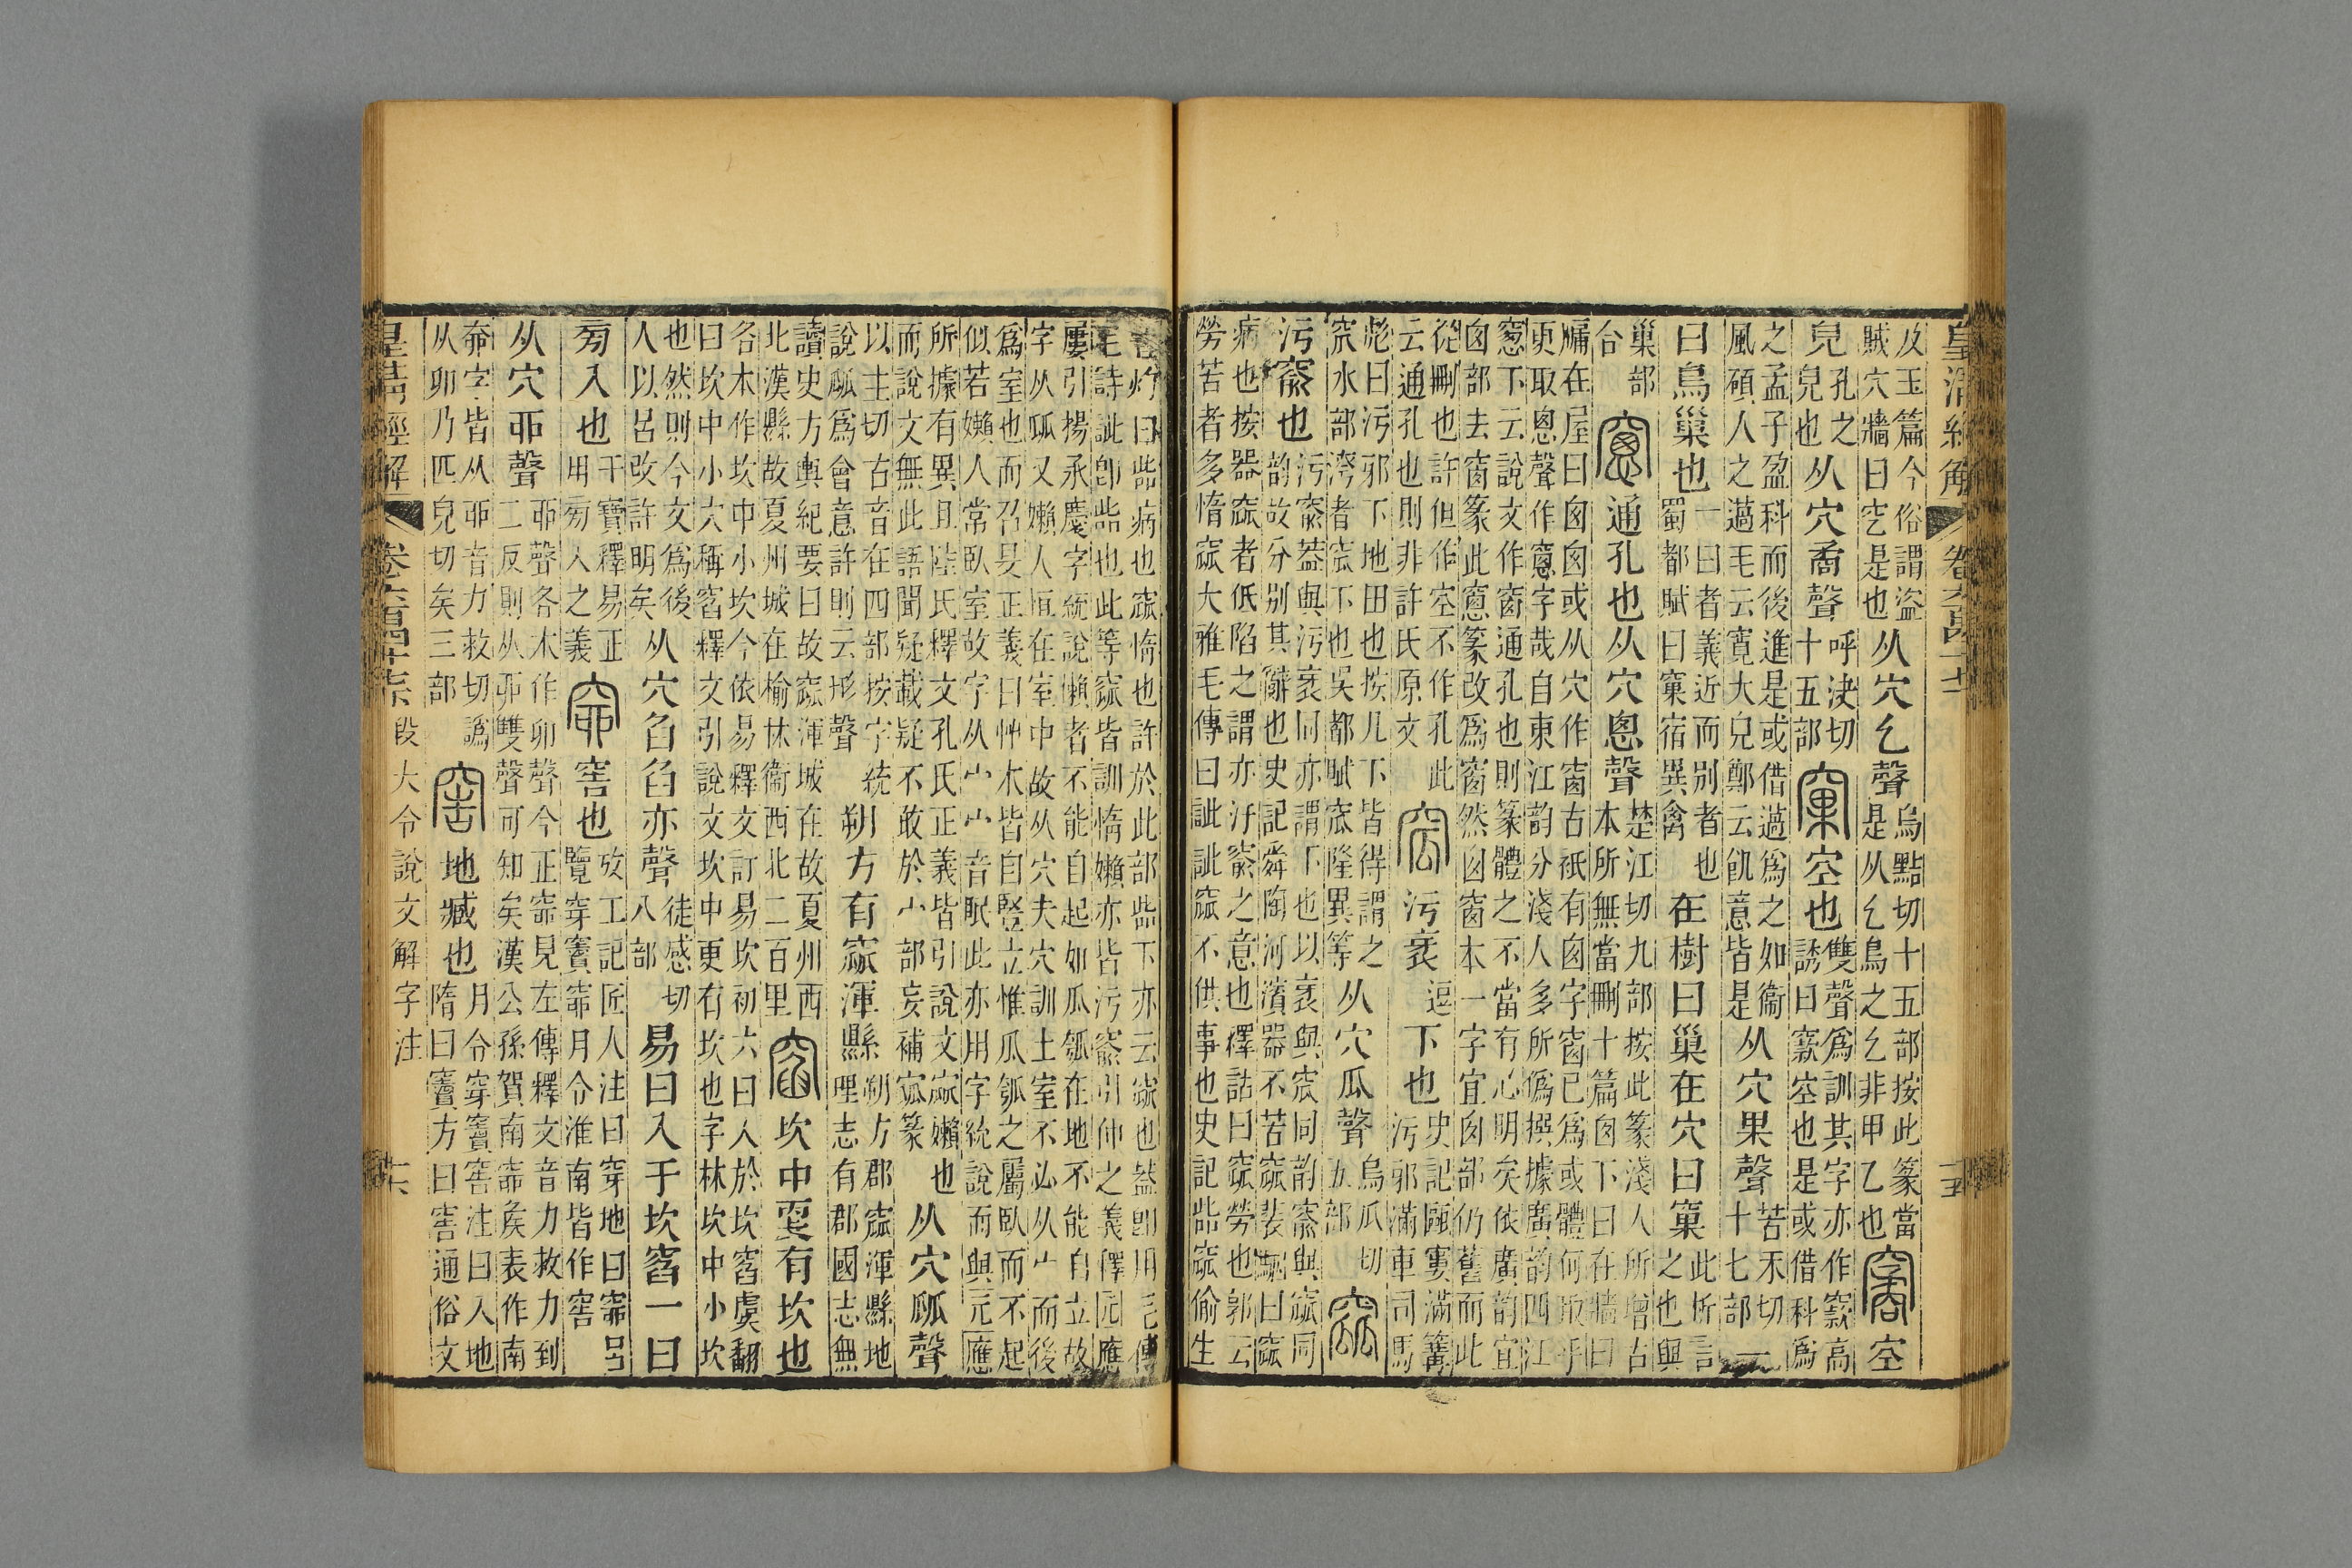 皇清經解 卷六百四十七 十五
及玉篇今俗謂盜
賊穴牆曰空是也
从穴乞聲
烏黠切十五部按此篆當
是从乞鳥之乞非甲乙也
窙空
皃
孔之
皃也
从穴矞聲
呼決切
十五部
窠空也
雙聲爲訓其字亦作窾高
誘曰窾空也是或借科爲
之孟子盈科而後進是或借薖爲之如衞
風碩人之薖毛云寬大皃鄭云飢意皆是
从穴果聲
苦禾切
十七部
一
曰鳥巢也
一曰者義近而別者也
蜀都賦曰窠宿異禽
在樹曰巢在穴曰窠
此析言
之也與
巢部
合
窻通孔也从穴悤聲
楚江切九部按此篆淺人所增古
本所無當刪十篇囪下曰在牆曰
牖在屋曰囪囪或从穴作窗古祇有囪字窗已爲或體何取乎
更取悤聲作窻字哉自東江韵分淺人多所僞撰據廣韵四江
窻下云說文作窗通孔也則篆體之不當有心明矣依廣韵宜
囪部去窗篆此窻篆改爲窗然囪窗本一字宜囪部仍舊而此
從刪也許但作空不作孔此
云通孔也則非許氏原文
窊污衺
逗
下也
史記甌窶滿篝
污邪滿車司馬
彪曰污邪下地田也按凡下皆得謂之
窊水部漥者窊下也吳都賦窊隆異等
从穴瓜聲
烏瓜切
五部
窳
污窬也
污窬葢與污衺同亦謂下也以衺與窊同韵窬與窳同
韵故分別其辭也史記舜陶河濱器不苦窳裴駰曰窳
病也按器窳者低陷之謂亦汙窬之意也釋詁曰窳勞也郭云
勞苦者多惰窳大雅毛傳曰訿訿窳不供事也史記呰窳偷生
晉灼曰呰病也窳惰也許於此部呰下亦云窳也葢卽用毛傳
毛詩訿卽呰也此等窳皆訓惰嬾亦皆污窬引伸之義釋元應
屢引揚承慶字統說嬾者不能自起如瓜瓠在地不能自立故
字从㼌又嬾人恒在室中故从穴夫穴訓土室不必从宀而後
爲室也而召旻正義曰艸木皆自豎立惟瓜瓠之屬臥而不起
似若嬾人常臥室故字从宀宀音眠此亦用字統說而與元應
所據有異且陸氏釋文孔氏正義皆引說文窳嬾也
而說文無此語聞疑載疑不敢於宀部妄補寙篆
从穴㼌聲
以主切古音在四部按字統
說㼌爲會意許則云形聲
朔方有窳渾縣
朔方郡窳渾縣地
理志有郡國志無
讀史方輿紀要曰故窳渾城在故夏州西
北漢縣故夏州城在榆林衞西北二百里
窞坎中更有坎也
各本作坎中小坎今依易釋文訂易坎初六曰入於坎窞虞翻
曰坎中小穴稱窞釋文引說文坎中更有坎也字林坎中小坎
也然則今文爲後
人以呂改許明矣
从穴臽臽亦聲
徒感切
八部
易曰入于坎窞一曰
旁入也
干寶釋易正
用旁入之義
窌窖也
攷工記匠人注曰穿地曰窌呂
覽穿竇窌月令淮南皆作窖
从穴丣聲
丣聲各本作卯聲今正窌見左傳釋文音力救力到
二反則从丣雙聲可知矣漢公孫賀南窌矦表作南
奅字皆从丣音力救切譌
从卯乃匹皃切矣三部
窖地臧也
月令穿竇窖注曰入地
隋曰竇方曰窖通俗文
皇清經解 卷六百四十七 段大令說文解字注 十六